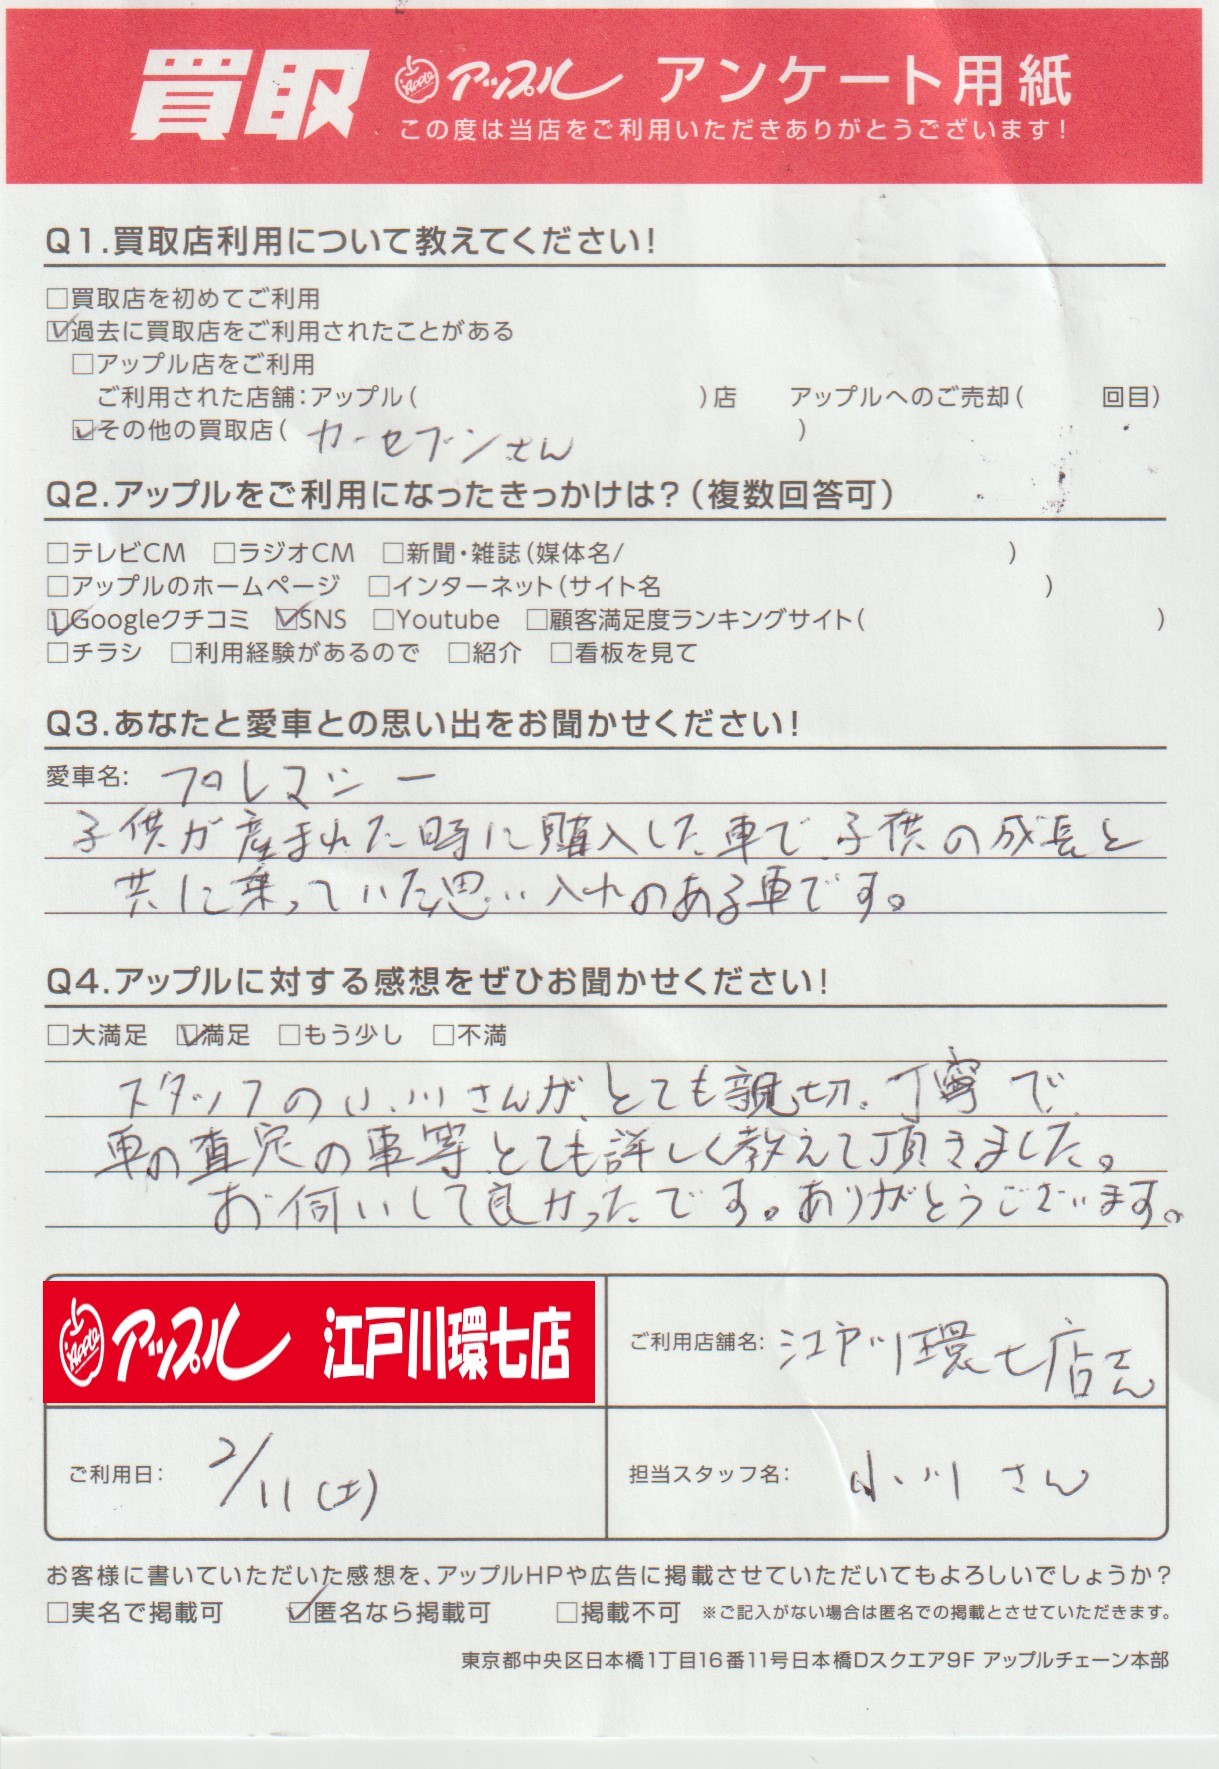 買取 Apple アップル アンケート用紙
この度は当店をご利用いただきありがとうございます!
Q1.買取店利用について教えてください!
□買取店を初めてご利用
☑過去に買取店をご利用されたことがある
□アップル店をご利用
ご利用された店舗:アップル( )店 アップルへのご売却( 回目)
☑その他の買取店( カーセブンさん )
Q2.アップルをご利用になったきっかけは?(複数回答可)
□テレビCM □ラジオCM □新聞・雑誌(媒体名/ )
□アップルのホームページ □インターネット(サイト名 )
☑Googleクチコミ ☑SNS □Youtube □顧客満足度ランキングサイト( )
□チラシ □利用経験があるので □紹介 □看板を見て
Q3.あなたと愛車との思い出をお聞かせください!
愛車名: プレマシー
子供が産まれた時に購入した車で子供の成長と
共に乗っていた思い入れのある車です。
Q4.アップルに対する感想をぜひお聞かせください!
□大満足 ☑満足 □もう少し □不満
スタッフの小川さんが、とても親切、丁寧で
車の査定の事等とても詳しく教えて頂きました。
お伺いして良かったです。ありがとうございます。
Apple アップル 江戸川環七店
ご利用店舗名: 江戸川環七店さん
ご利用日: 2/11(土)
担当スタッフ名: 小川さん
お客様に書いていただいた感想を、アップルHPや広告に掲載させていただいてもよろしいでしょうか?
□実名で掲載可 ☑匿名なら掲載可 □掲載不可 ※ご記入がない場合は匿名での掲載とさせていただきます。
東京都中央区日本橋1丁目16番11号日本橋Dスクエア9F アップルチェーン本部